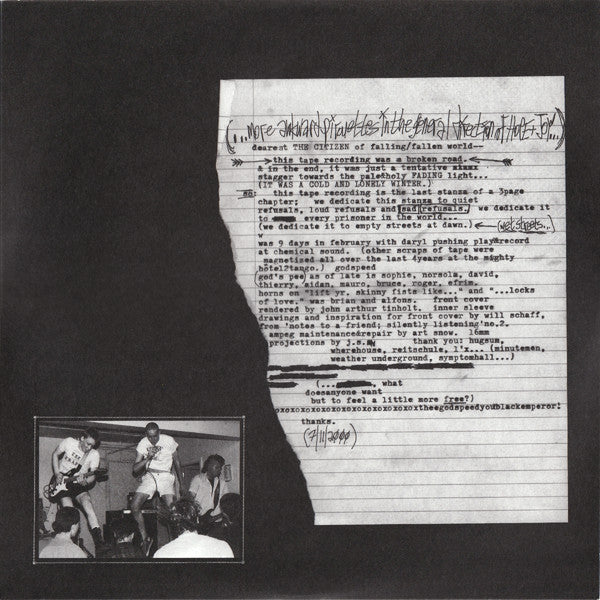 (...more awkward pirouettes in the general direction of HOPE + JOY...)
dearest THE CITIZEN of falling/fallen world--
this tape recording was a broken road.
& in the end, it was just a tentative
stagger towards the pale+holy FADING light...
(IT WAS A COLD AND LONELY WINTER.)
so: this tape recording is the last stanza of a 3page
chapter; we dedicate this stanza to quiet
refusals, loud refusals and sad refusals. we dedicate it
to every prisoner in the world...
(we dedicate it to empty streets at dawn.) (wet streets...)
w
was 9 days in february with daryl pushing play+record
at chemical sound. (other scraps of tape were
magnetised all over the last 4years at the mighty
hotel2tango.) godspeed
(god's pee) as of late is sophie, norsola, david,
thierry, aidan, mauro, bruce, roger, efrim.
horns on "lift yr. skinny fists like..." and "...locks
of love." was brian and alfons. front cover
rendered by john arthur tinholt. inner sleeve
drawings and inspiration for front cover by will schaff,
from 'notes to a friend; silently listening'no.2.
ampeg maintenance&repair by art snow. 16mm
projections by j.s. thank you: hugsum,
wherehouse, reitschule, l'x... (minutemen,
weather underground, symptomhall...)
(... , what
doesanyone want
but to feel a little more free?)
oxoxoxoxoxoxoxoxoxoxoxtheegodspeedyoublackemperor!
thanks.
(7/11/2000)